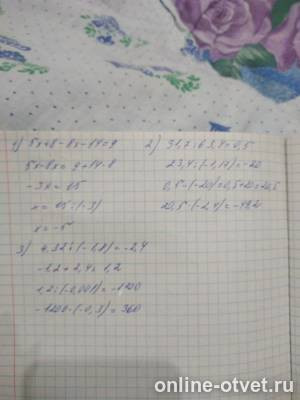 1) 5x+8-8x-14=9
5x-8x=9+14-8
-3x=15
x=15:(-3)
x=-5
2) 31,7:63,4=0,5
23,4:(-1,17)=-20
0,5-(-20)=0,5+20=20,5
20,5·(-2,4)=-49,2
3) 4,32:(-1,8)=-2,4
-1,2+2,4=1,2
1,2:(-0,001)=-1200
-1200·(-0,3)=360
online-otvet.ru